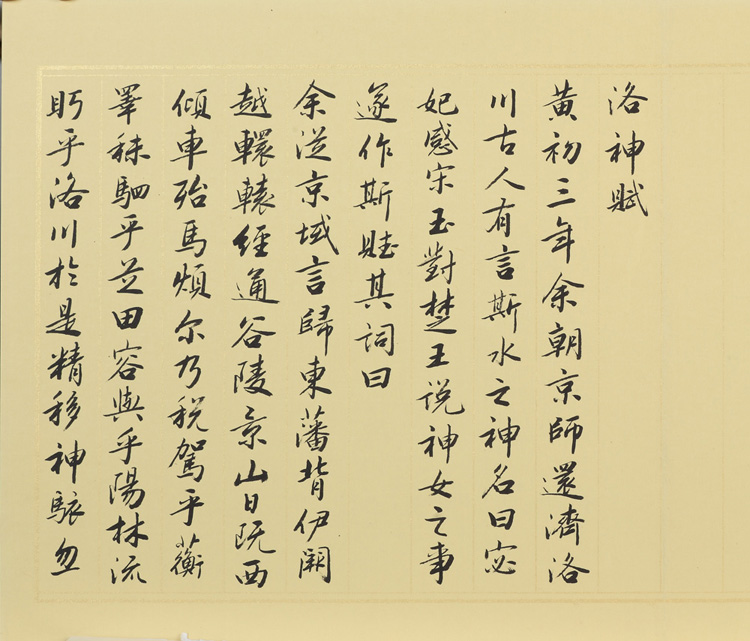 洛神賦
黃初三年余朝京師還濟洛
川古人有言斯水之神名曰宓
妃感宋玉對楚王说神女之事
遂作斯賦其詞曰
余从京域言歸東藩背伊闕
越轘轅經通谷陵景山日既西
傾車殆馬煩尔乃税駕乎蘅
皋秣駟乎芝田容與乎陽林流
眄乎洛川於是精移神駭忽